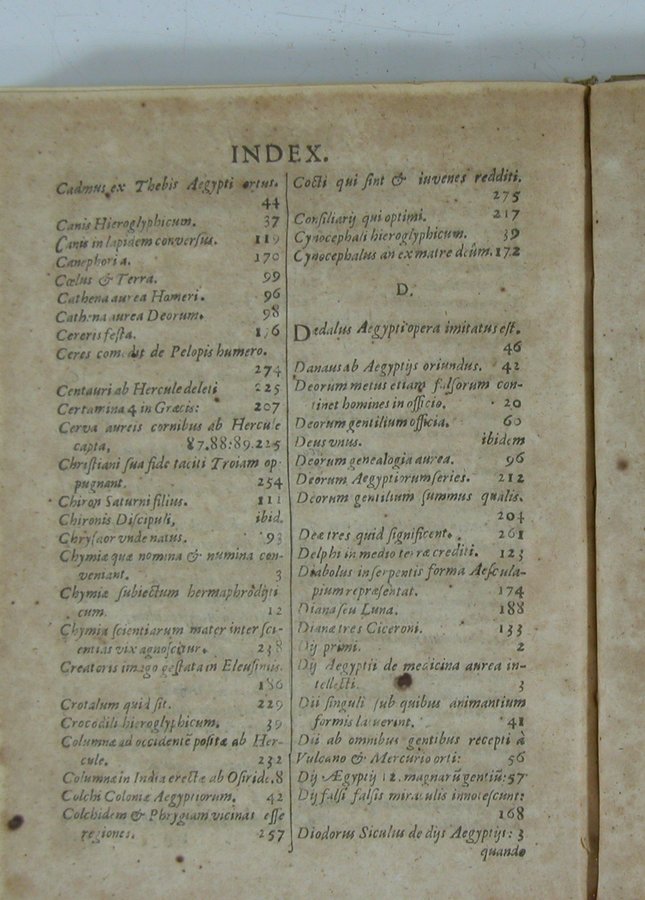 INDEX.
Cadmus ex Thebis Aegypti ortus.
44
Canis Hieroglyphicum. 37
Canis in lapidem conversus. 119
Canephoria. 170
Cœlus & Terra. 99
Cathena aurea Homeri. 96
Cathena aurea Deorum. 98
Cereris festa.
Ceres comedit de Pelopis humero.
274
Centauri ab Hercule deleti 225
Certamina 4 in Græcis: 207
Cerva aureis cornibus ab Hercule
capta, 87.88:89.225
Christiani sua fide taciti Troiam op
pugnant. 254
Chiron Saturni filius. 111
Chironis Discipuli, ibid.
Chrysaor unde natus. 93
Chymia quæ nomina & numina con-
veniant. 3
Chymiæ subiectum hermaphroditi
cum. 12
Chymia scientiarum mater inter sci-
entias vix agnoscitur. 238
Creatoris imago gestata in Eleusiniis.
186
Crotalum quid sit. 229
Crocodili hieroglyphicum. 39
Columnæ ad occidentē positæ ab Her-
cule. 232
Columnæ in India erectæ ab Osiride. 8
Colchi Coloniæ Aegyptiorum. 42
Colchidem & Phrygiam vicinas esse
regiones. 257
Cocti qui sint & iuvenes redditi.
275
Consiliarij qui optimi. 217
Cynocephali hieroglyphicum. 39
Cynocephalus an ex matre deûm. 172
D.
Dædalus Aegypti opera imitatus est.
46
Danaus ab Aegyptijs oriundus. 42
Deorum metus etiam falsorum con-
tinet homines in officio. 20
Deorum gentilium officia. 60
Deus vnus. ibidem
Deorum genealogia aurea. 96
Deorum Aegyptiorum series. 212
Deorum gentilium summus qualis.
204
Deæ tres quid significent. 261
Delphi in medio terræ crediti. 123
Diabolus in serpentis forma Aescula-
pium repræsentat. 174
Diana seu Luna. 188
Dianæ tres Ciceroni. 133
Dij primi. 2
Dij Aegyptii de medicina aurea in-
tellecti. 3
Dii singuli sub quibus animantium
formis latuerint. 41
Dii ab omnibus gentibus recepti à
Vulcano & Mercurio orti: 56
Dij Ægyptij 12. magnarū gentiū: 57
Dij falsi falsis miraculis innotescunt:
168
Diodorus Siculus de dijs Aegyptijs: 3
quando